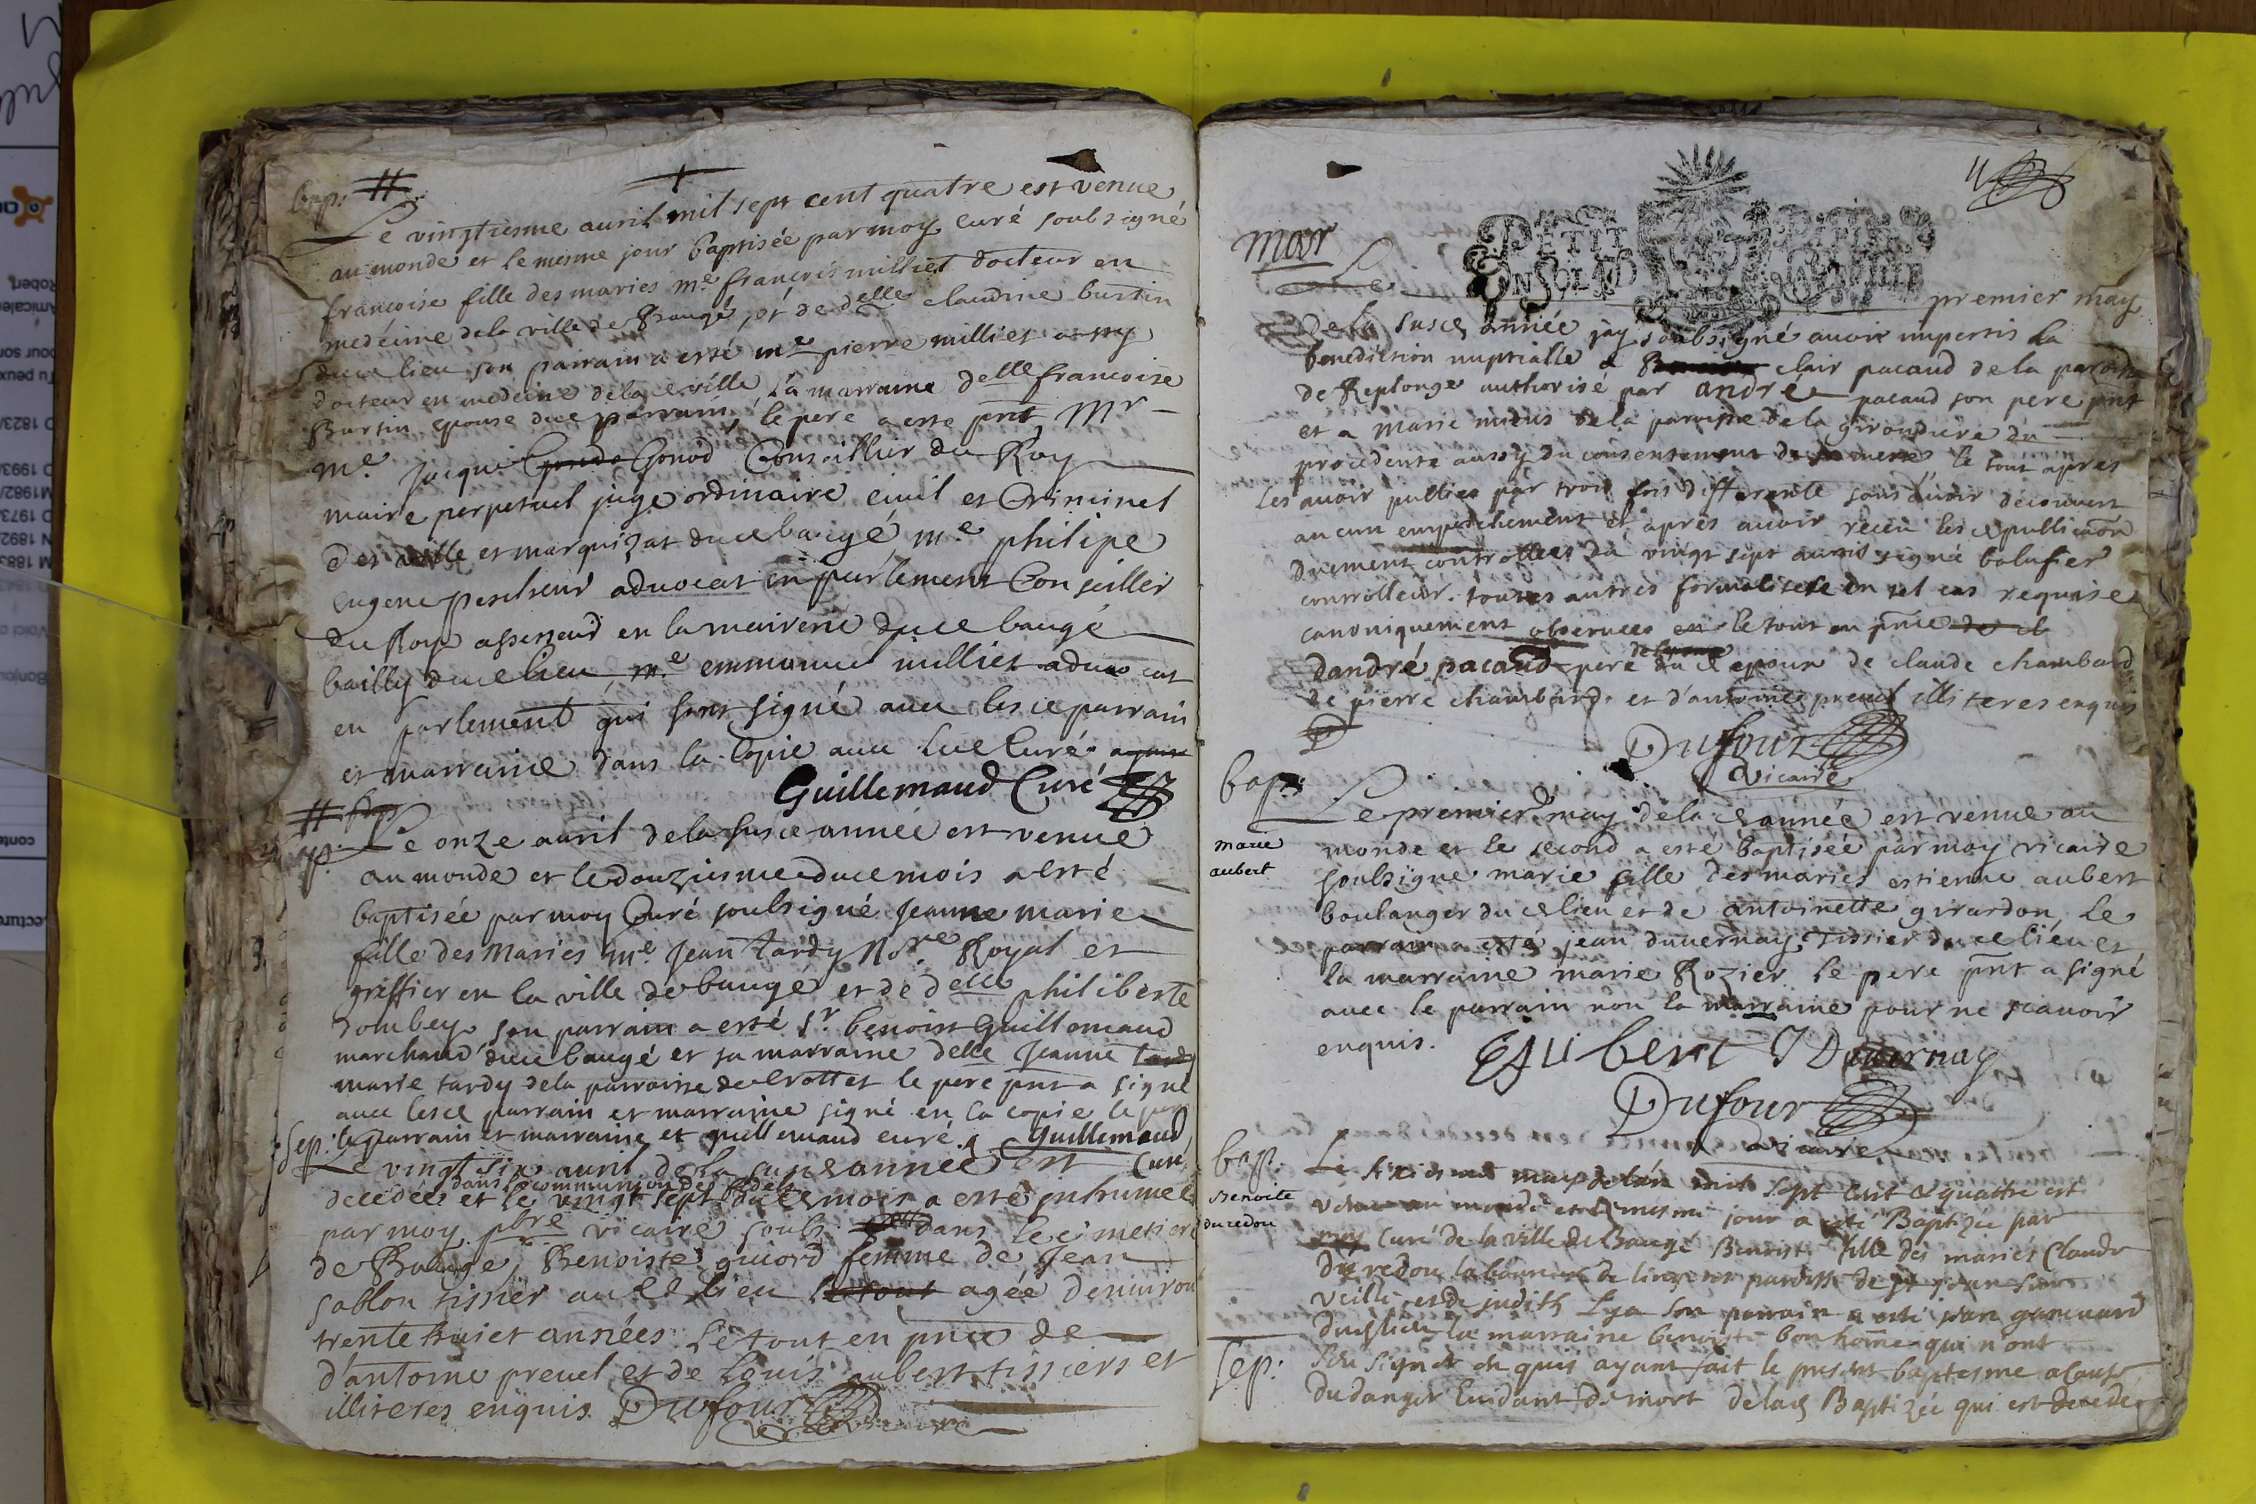 bap:
Le vingtiesme auril mil sept cent quatre est venue
au monde et le mesme jour baptisée par moy curé soubsigné
francoise fille des maries me francois milliet docteur en
medécine de la ville de Baugé, et de delle claudine burtin
dud lieu son parrain a esté me pierre milliet
docteur en medecine de lad ville, La marraine delle francoise
Burtin epouse dud parrain, le pere a esté pnt, Mr
me jacque Gonod Conseillier du Roy
maire perpetuel juge ordinaire ciuil et Criminel
des ville et marquizat dud baugé, me philipe
eugene aduocat en parlement Conseiller
du Roy assesseur en la mairerie dud baugé
bailly dud lieu, me emmanuel milliet aduocat
en parlement qui sont signé auec lesd parrain
et marraine dans la Copie auec led Curé
Guillemaud Curé
bap:
Le onze auril de la susd année est venue
au monde et le douziesme dud mois a esté
baptisée par moy Curé soubsigné Jeanne marie
fille des Mariés me Jean tardy Nore Royal et
greffier en la ville de baugé et de delle philiberte
Dombey son parrain a esté sr benoist Guillemaud
marchand dud baugé et sa marraine delle Jeanne
marie tardy de la parroisse de Crottet le pere pnt a signé
auec lesd parrain et marraine signé en la copie le pere
le parrain et marraine et guillemaud curé. Guillemaud
Curé
Sep:
Le vingt six auril de la susd année est
dans la communion des fideles
decedée et le vingt sept dud mois a esté inhumée
par moy pbre vicaire soubs: dans le cimetiere
de Baugé, Benoiste guiord femme de Jean
Sablon tissier aud lieu agée denuiron
trente huict années Le tout en pnce de
d'antoine preuel et de Louis aubert tissiers et
illiteres enquis Dufour
vicaire
11
PETIT PAPIER
mar
Le premier may
de la susd année jay soubsigné auoir imperti la
benediction nuptialle a clair pacaud de la paroisse
de Replonge authorisé par andré pacaud son pere pnt
et a Marie mieus de la paroisse de la girondiere
procedente aussy du consentement de le tout apres
les auoir publies par trois fois differente sans auoir decouuert
aucun empechement et apres auoir receu lesd publication
duement controllees du vingt sept auril signé bolufier
controlleur. toutes autres formalitees en tel cas requise
canoniquement obseruees le tout en pnce
dandré pacaud pere dud epoux de claude chambard
de pierre chambard et d'antoine preuel illiteres enquis
Dufour
vicaire
bap:
marie
aubert
Le premier may de lad année est venue au
monde et le second a esté baptisée par moy vicaire
soubsigne marie fille des mariés estienne aubert
boulanger dud lieu et de antoinette girardon, Le
parrain a esté jean duuernay Tissier dud lieu et
la marraine marie Rozier le pere pnt a signé
auec le parrain non la marraine pour ne scauoir
enquis.
E Aubert J Duuernay
Dufour
vicaire
bap:
Benoite
duredou
Le sixiesme may de lan mil sept cent & quattre est
venue au monde et le mesme jour a esté Baptizée par
moy Curé de la ville de Baugé Benoiste fille des mariés Claude
du redou laboureur de paroisse de st jean sur
veille et de judith Lya son parrain a esté jean
dud lieu la marraine benoiste bonhome qui n'ont
sceu signer enquis ayant fait le present baptesme a cause
du danger Euidant de mort de lad Baptizée qui est decedée
Sep: